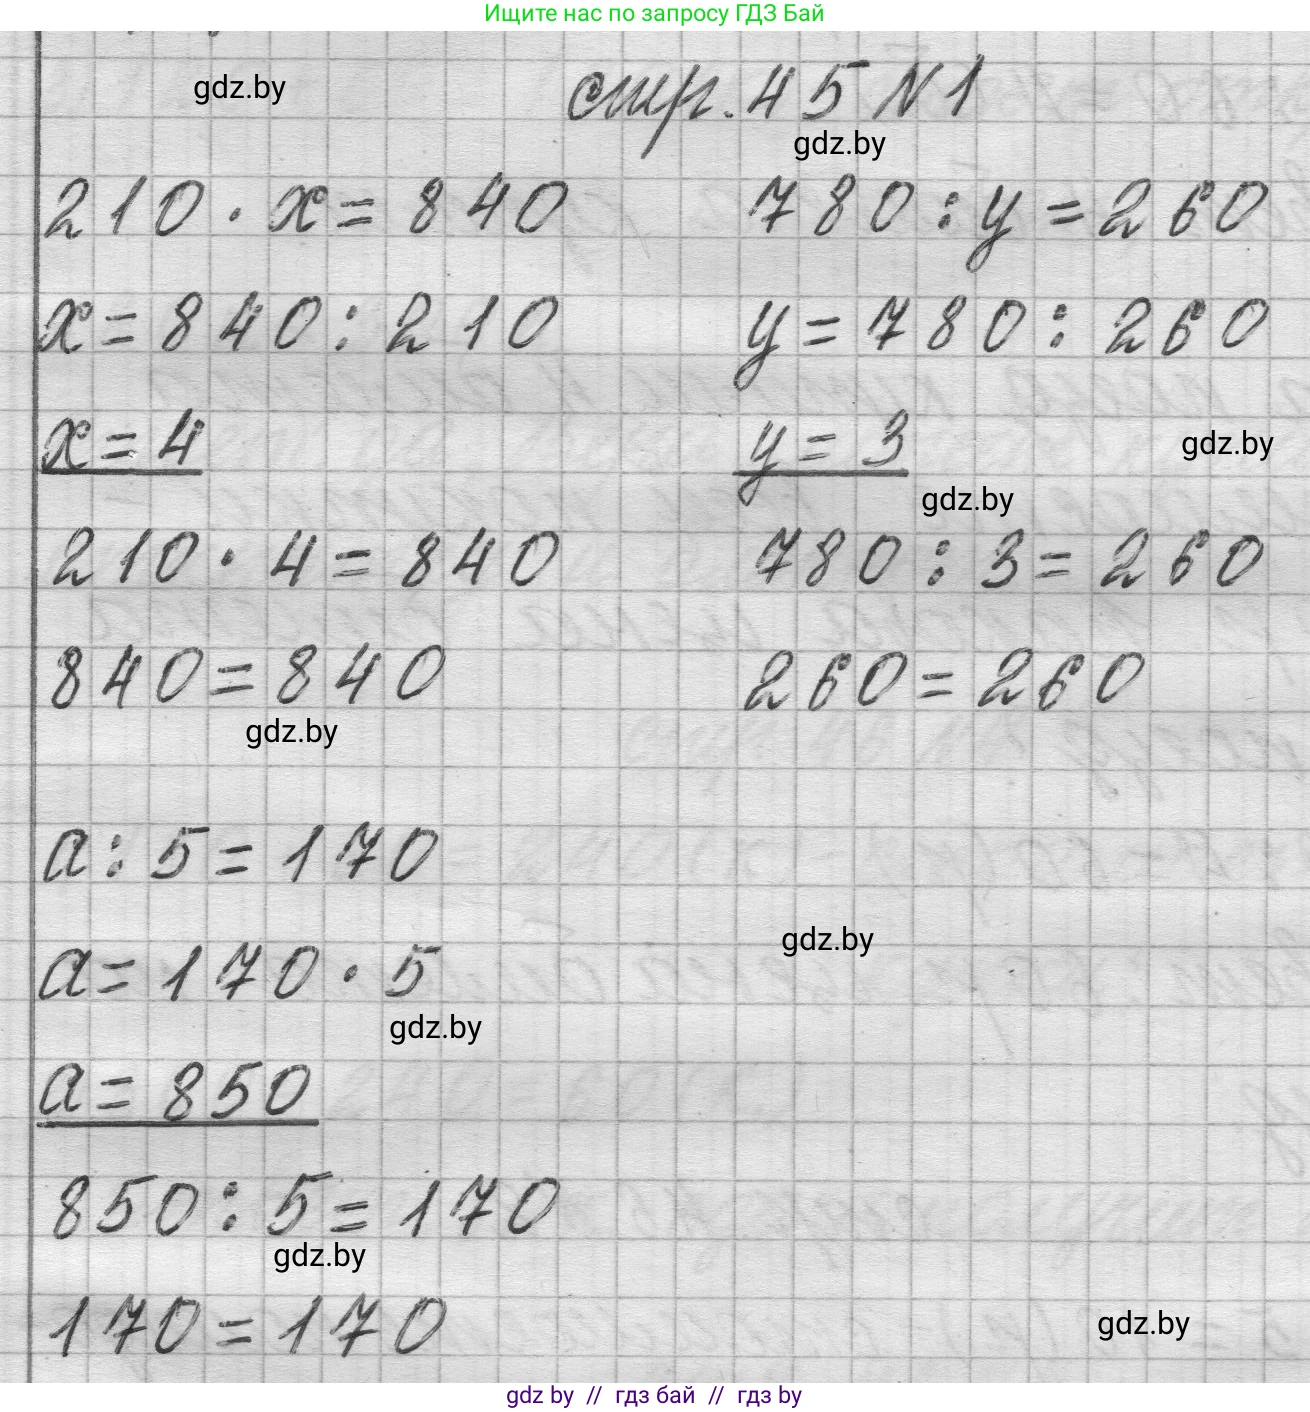 Ищите нас по запросу ГДЗ Бай
gdz.by
стр. 45 N 1
gdz.by
210 · x = 840
x = 840 : 210
x = 4
210 · 4 = 840
840 = 840
gdz.by
780 : y = 260
y = 780 : 260
y = 3
gdz.by
gdz.by
780 : 3 = 260
260 = 260
a : 5 = 170
a = 170 · 5
gdz.by
gdz.by
a = 850
850 : 5 = 170
gdz.by
170 = 170
gdz.by
gdz by // гдз бай // gdz by